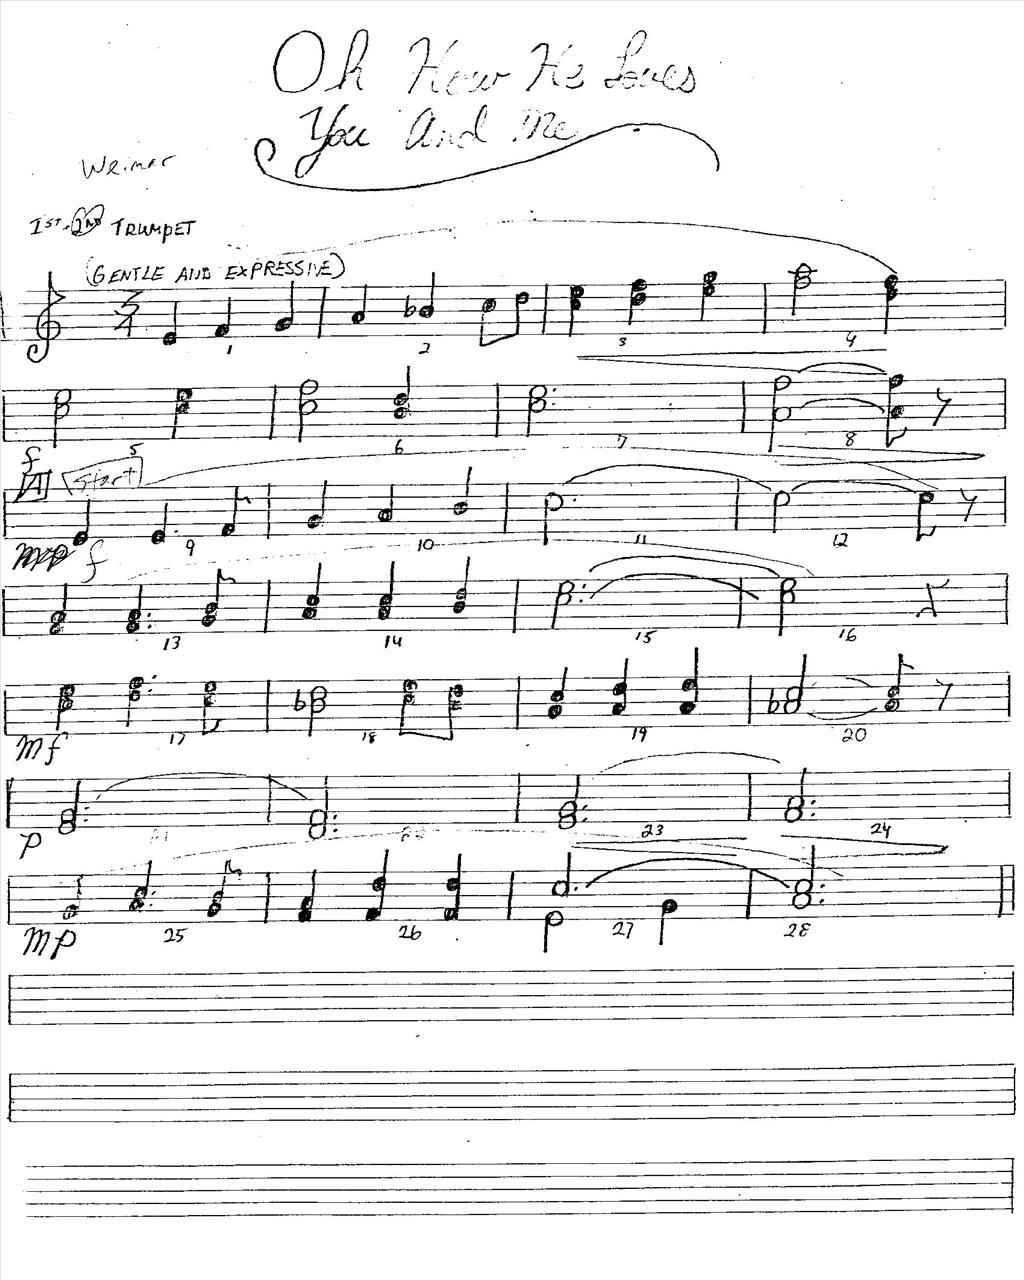 Oh How He Loves
You And Me
Weimer
1ST. 2ND TRUMPET
(GENTLE AND EXPRESSIVE)
3/4
1 2 3 4
5 6 7 8
f
A Start
9 10 11 12
f
13 14 15 16
17 18 19 20
mf
21 22 23 24
p
25 26 27 28
mp